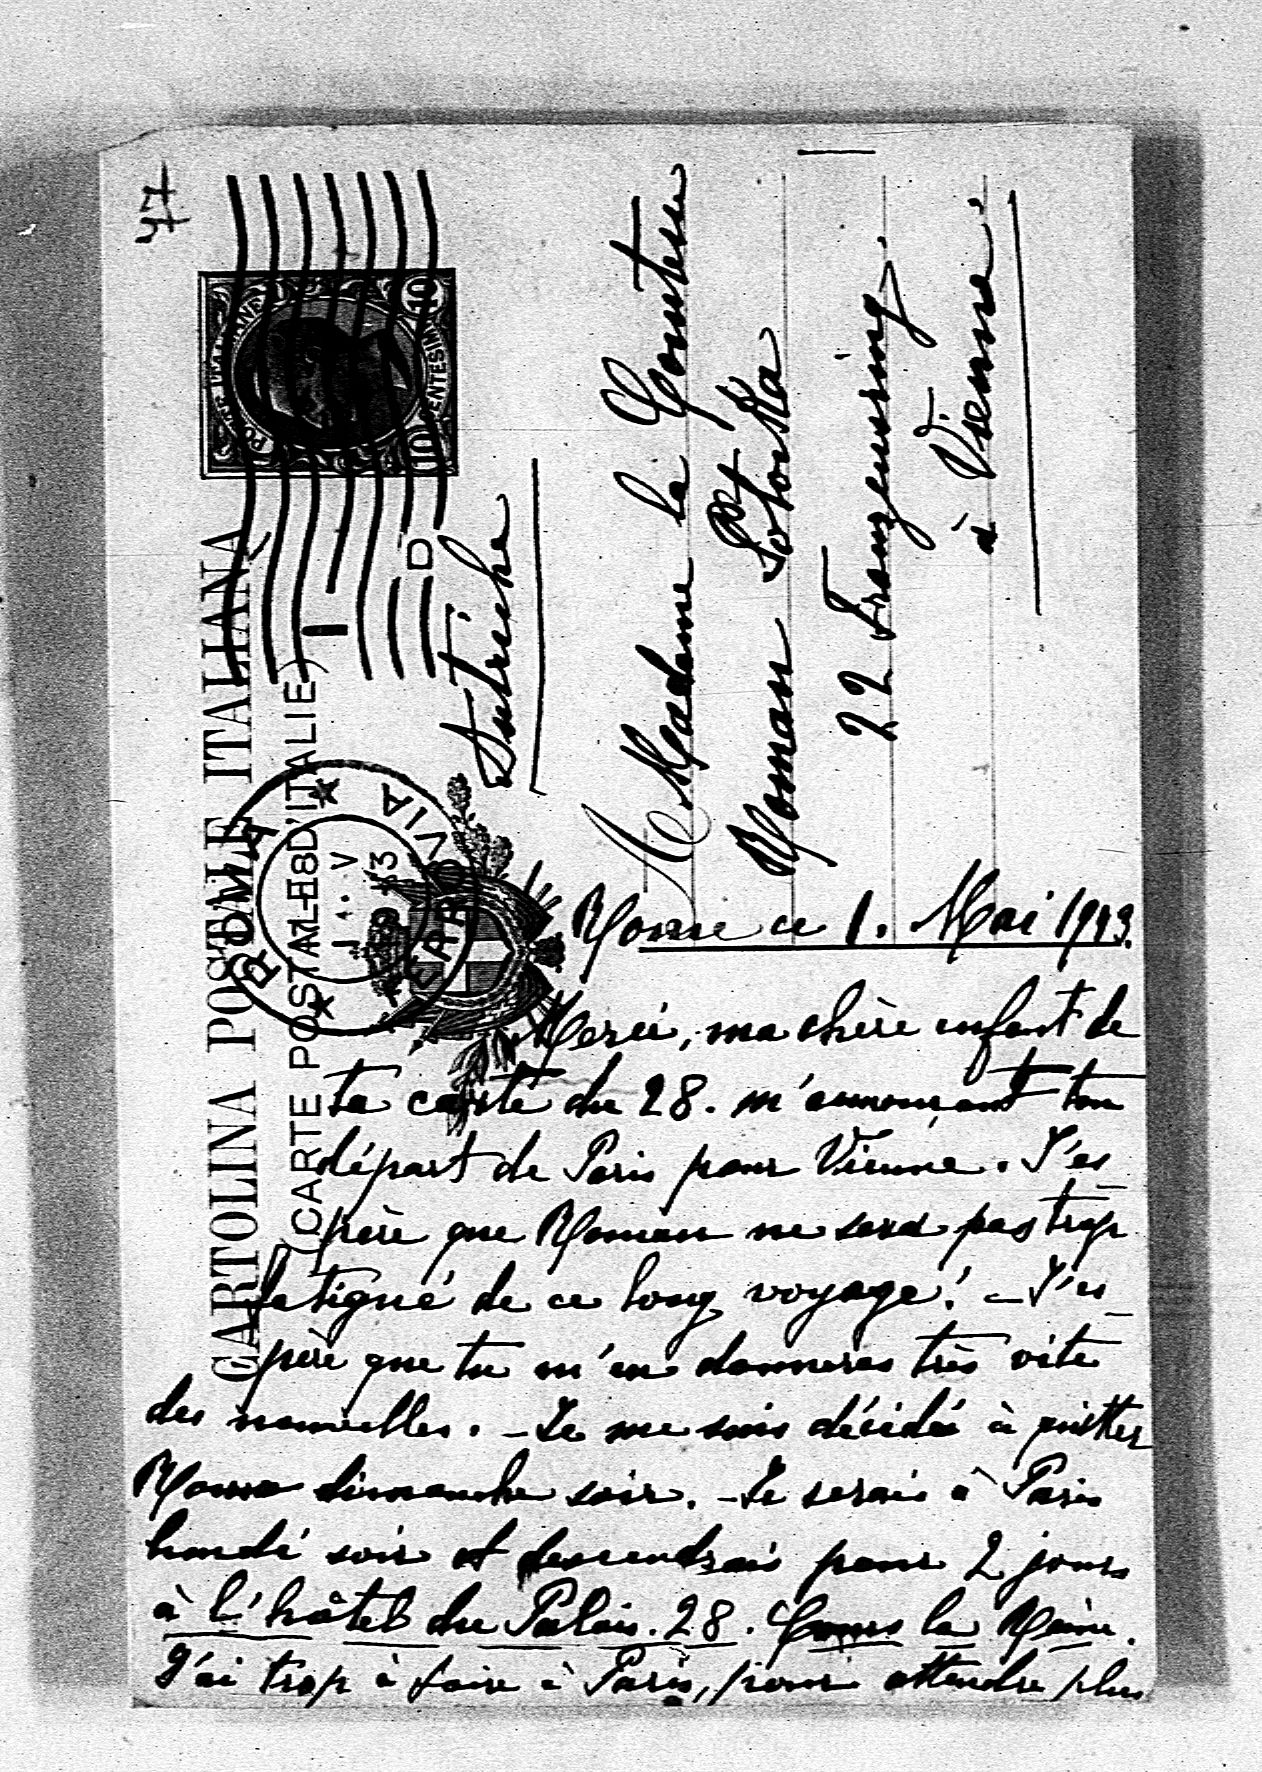 77
POSTE ITALIANE
10 CENTESIMI 10
CARTOLINA POSTALE ITALIANA
(CARTE POSTALE D'ITALIE)
ROMA FERROVIA
1. V
13
Autriche
Madame la Comtesse
Roman Potocka
22 Franzensring
à Vienne.
Rome ce 1. Mai 1913.
Merci, ma chère enfant de
ta carte du 28. m'annonçant ton
départ de Paris pour Vienne. J'es
père que Roman ne sera pas trop
fatigué de ce long voyage! – J'es
père que tu m'en donneras très vite
des nouvelles. – Je me suis décidée à quitter
Rome dimanche soir. – Je serais à Paris
lundi soir et descendrais pour 2 jours
à l'hôtel du Palais. 28. Cours la Reine.
J'ai trop à faire à Paris, pour attendre plus